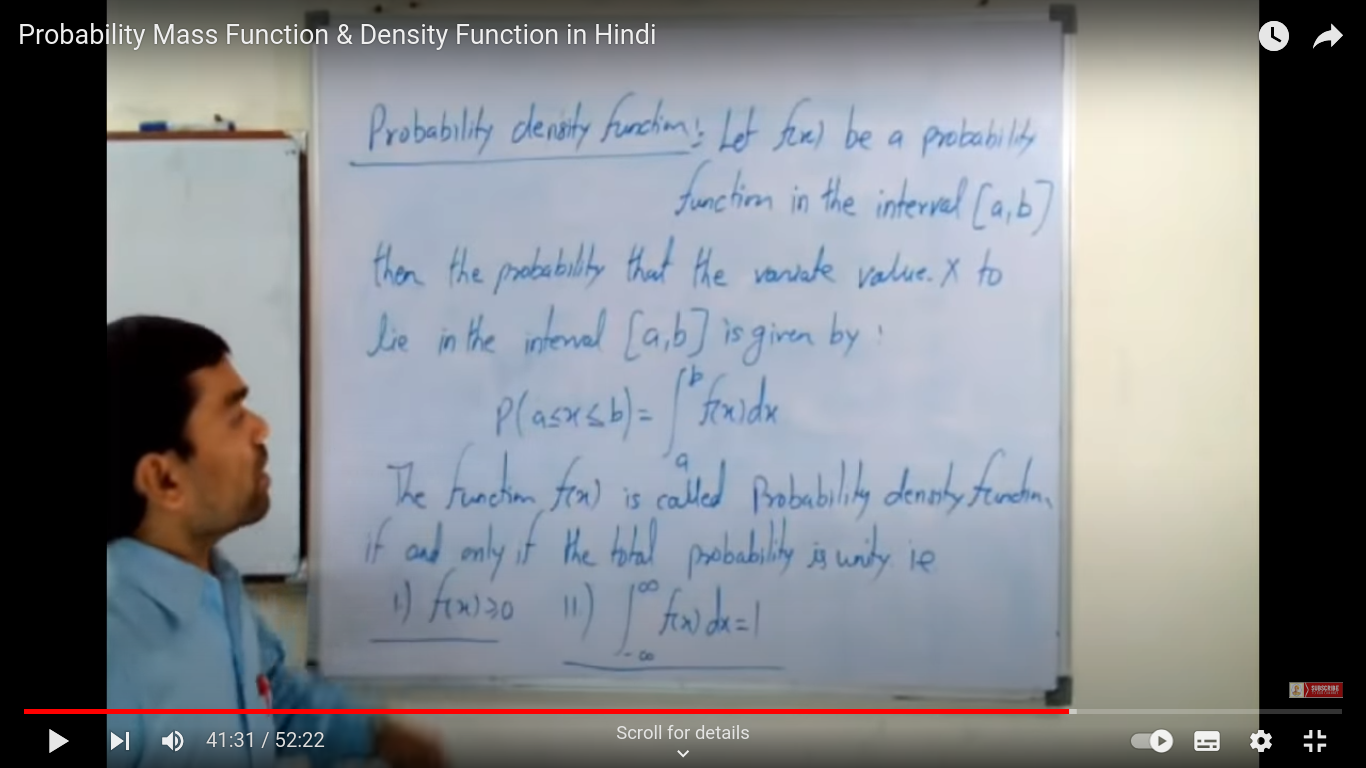 Probability Mass Function & Density Function in Hindi
Probability density function : Let f(x) be a probability
function in the interval [a,b]
then the probability that the variate value. X to
lie in the interval [a,b] is given by :
P(a≤x≤b) = ∫_a^b f(x)dx
The function f(x) is called Probability density function,
if and only if the total probability is unity ie
i) f(x)≥0 ii) ∫_{-∞}^{∞} f(x)dx=1
SUBSCRIBE
41:31 / 52:22
Scroll for details